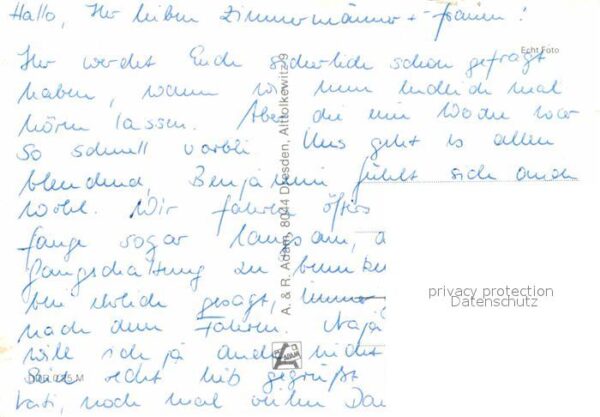 Hallo, Ihr lieben Zimmermänner + -frauen!
Ihr werdet Euch sicherlich schon gefragt
haben, wann wir nun endlich mal
hören lassen. Aber die eine Woche war
so schnell vorbei. Uns geht es allen
blendend, Benjamin fühlt sich auch
wohl. Wir fahren öfters
fange sogar langsam, a
Gangschaltung zu
ehrlich gesagt, immer
nach dem Fahren. Naja
will ich ja auch nicht
Seid recht lieb gegrüßt
noch mal vielen Dan
Echt Foto
A. & R. Adam, 8044 Dresden, Alttolkewitz 9
ADAM
privacy protection
Datenschutz